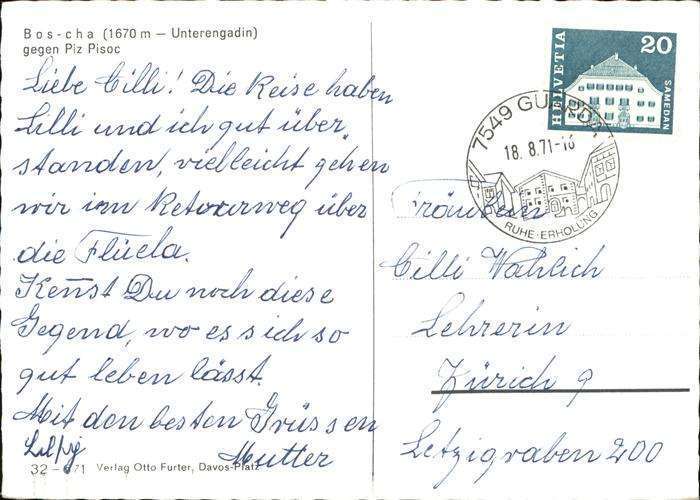 Bos-cha (1670 m — Unterengadin)
gegen Piz Pisoc
Liebe Cilli! Die Reise haben
Lilli und ich gut über
standen, vielleicht gehen
wir im Retourweg über
die Flüela.
Kennst Du noch diese
Gegend, wo es sich so
gut leben lässt.
Mit den besten Grüssen
Mutter
32 – 671 Verlag Otto Furter, Davos-Platz
HELVETIA
20
SAMEDAN
7549 GUARDA
18.8.71-16
RUHE·ERHOLUNG
Fräulein
Cilli Wahlich
Lehrerin
Zürich 9
Letzigraben 200